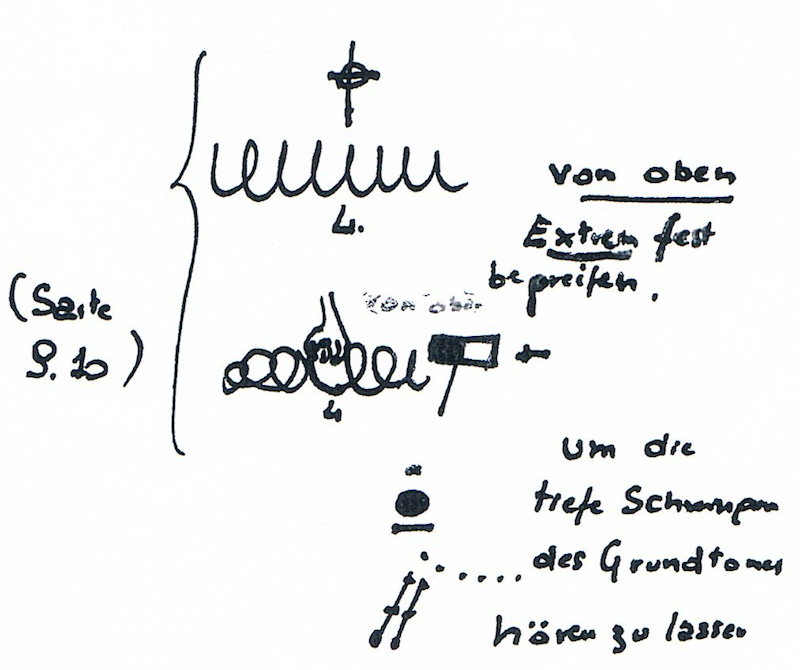 von oben
4.
Extrem fest
begreifen.
(Saite
9. 10)
Von oben
4
Um die
tiefe
des Grundtones
hören zu lassen